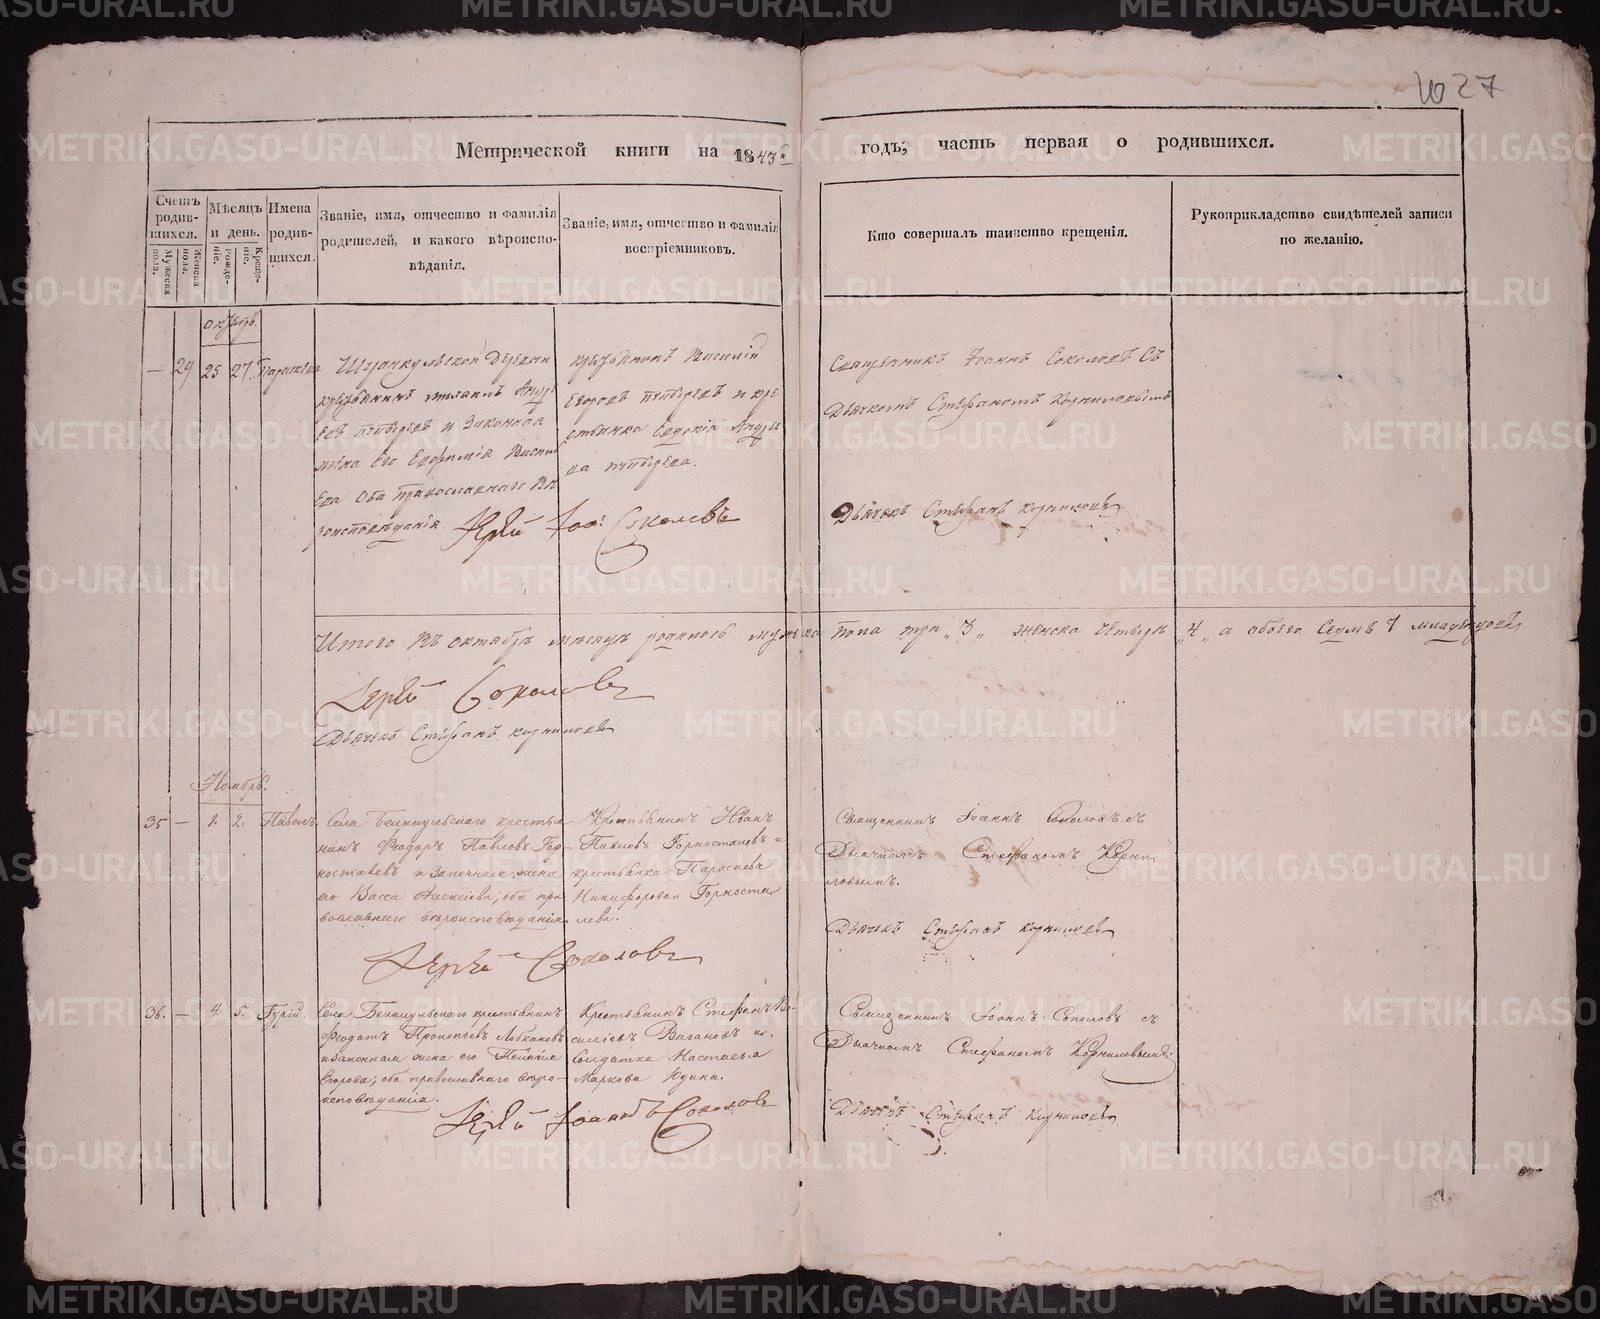 1027
Метрической книги на 1843й годъ, часть первая о родившихся.
Счетъ родив-
шихся.
Мужеска пола.
Женска пола.
Мѣсяцъ
и день.
рожде-
ніе.
Креще-
ніе.
Имена
родив-
шихся.
Званіе, имя, отчество и фамилія
родителей, и какого вѣроиспо-
вѣданія.
Званіе, имя, отчество и фамилія
воспріемниковъ.
Кто совершалъ таинство крещенія.
Рукоприкладство свидѣтелей записи
по желанію.
октябрь.
— 29 25 27. Параскева
деревни
крестьянинъ Андре
евъ и законная
жена его Евфимія Василь
ева оба православнаго вѣ
роисповѣданія.
крестьянинъ Василій
Егоровъ и кре
стьянка Евдокія Андре
ева
Священникъ Іоаннъ Соколовъ съ
Дьячкомъ Стефаномъ Корниловымъ
Іерей Іоа: Соколовъ
Дьячекъ Стефанъ Корниловъ
Итого въ октябрѣ мѣсяцѣ родилось мужеска пола три „3„ женска четыре „4„ а обоего седмъ 7 младенцовъ
Іерей Соколовъ
Дьячекъ Стефанъ Корниловъ
Ноябрь.
35 — 1. 2. Павелъ.
Села крестья
нинъ Феодоръ Павловъ Гор
ностаевъ и законная жена
его Васса Алексіева; оба пра
вославнаго вѣроисповѣданія.
Крестьянинъ Иванъ
Павловъ Горносталевъ и
крестьянка Параскева
Никифорова Горноста
лева.
Священникъ Іоаннъ Соколовъ съ
Дьячкомъ Стефаномъ Корни
ловымъ.
Дьячекъ Стефанъ Корниловъ
Іерей Соколовъ
36. — 4. 5. Гурій.
Села крестьянинъ
Феодотъ Прокопьевъ Лобкановъ
и законная жена его Пелагія
Егорова; оба православнаго вѣро-
исповѣданія.
Крестьянинъ Стефанъ Ва-
силіевъ Вагановъ и
Солдатка Настасья
Маркова Юдина.
Священникъ Іоаннъ Соколовъ съ
Дьячкомъ Стефаномъ Корниловымъ.
Іерей Іоаннъ Соколовъ
Дьячекъ Стефанъ Корниловъ
METRIKI.GASO-URAL.RU